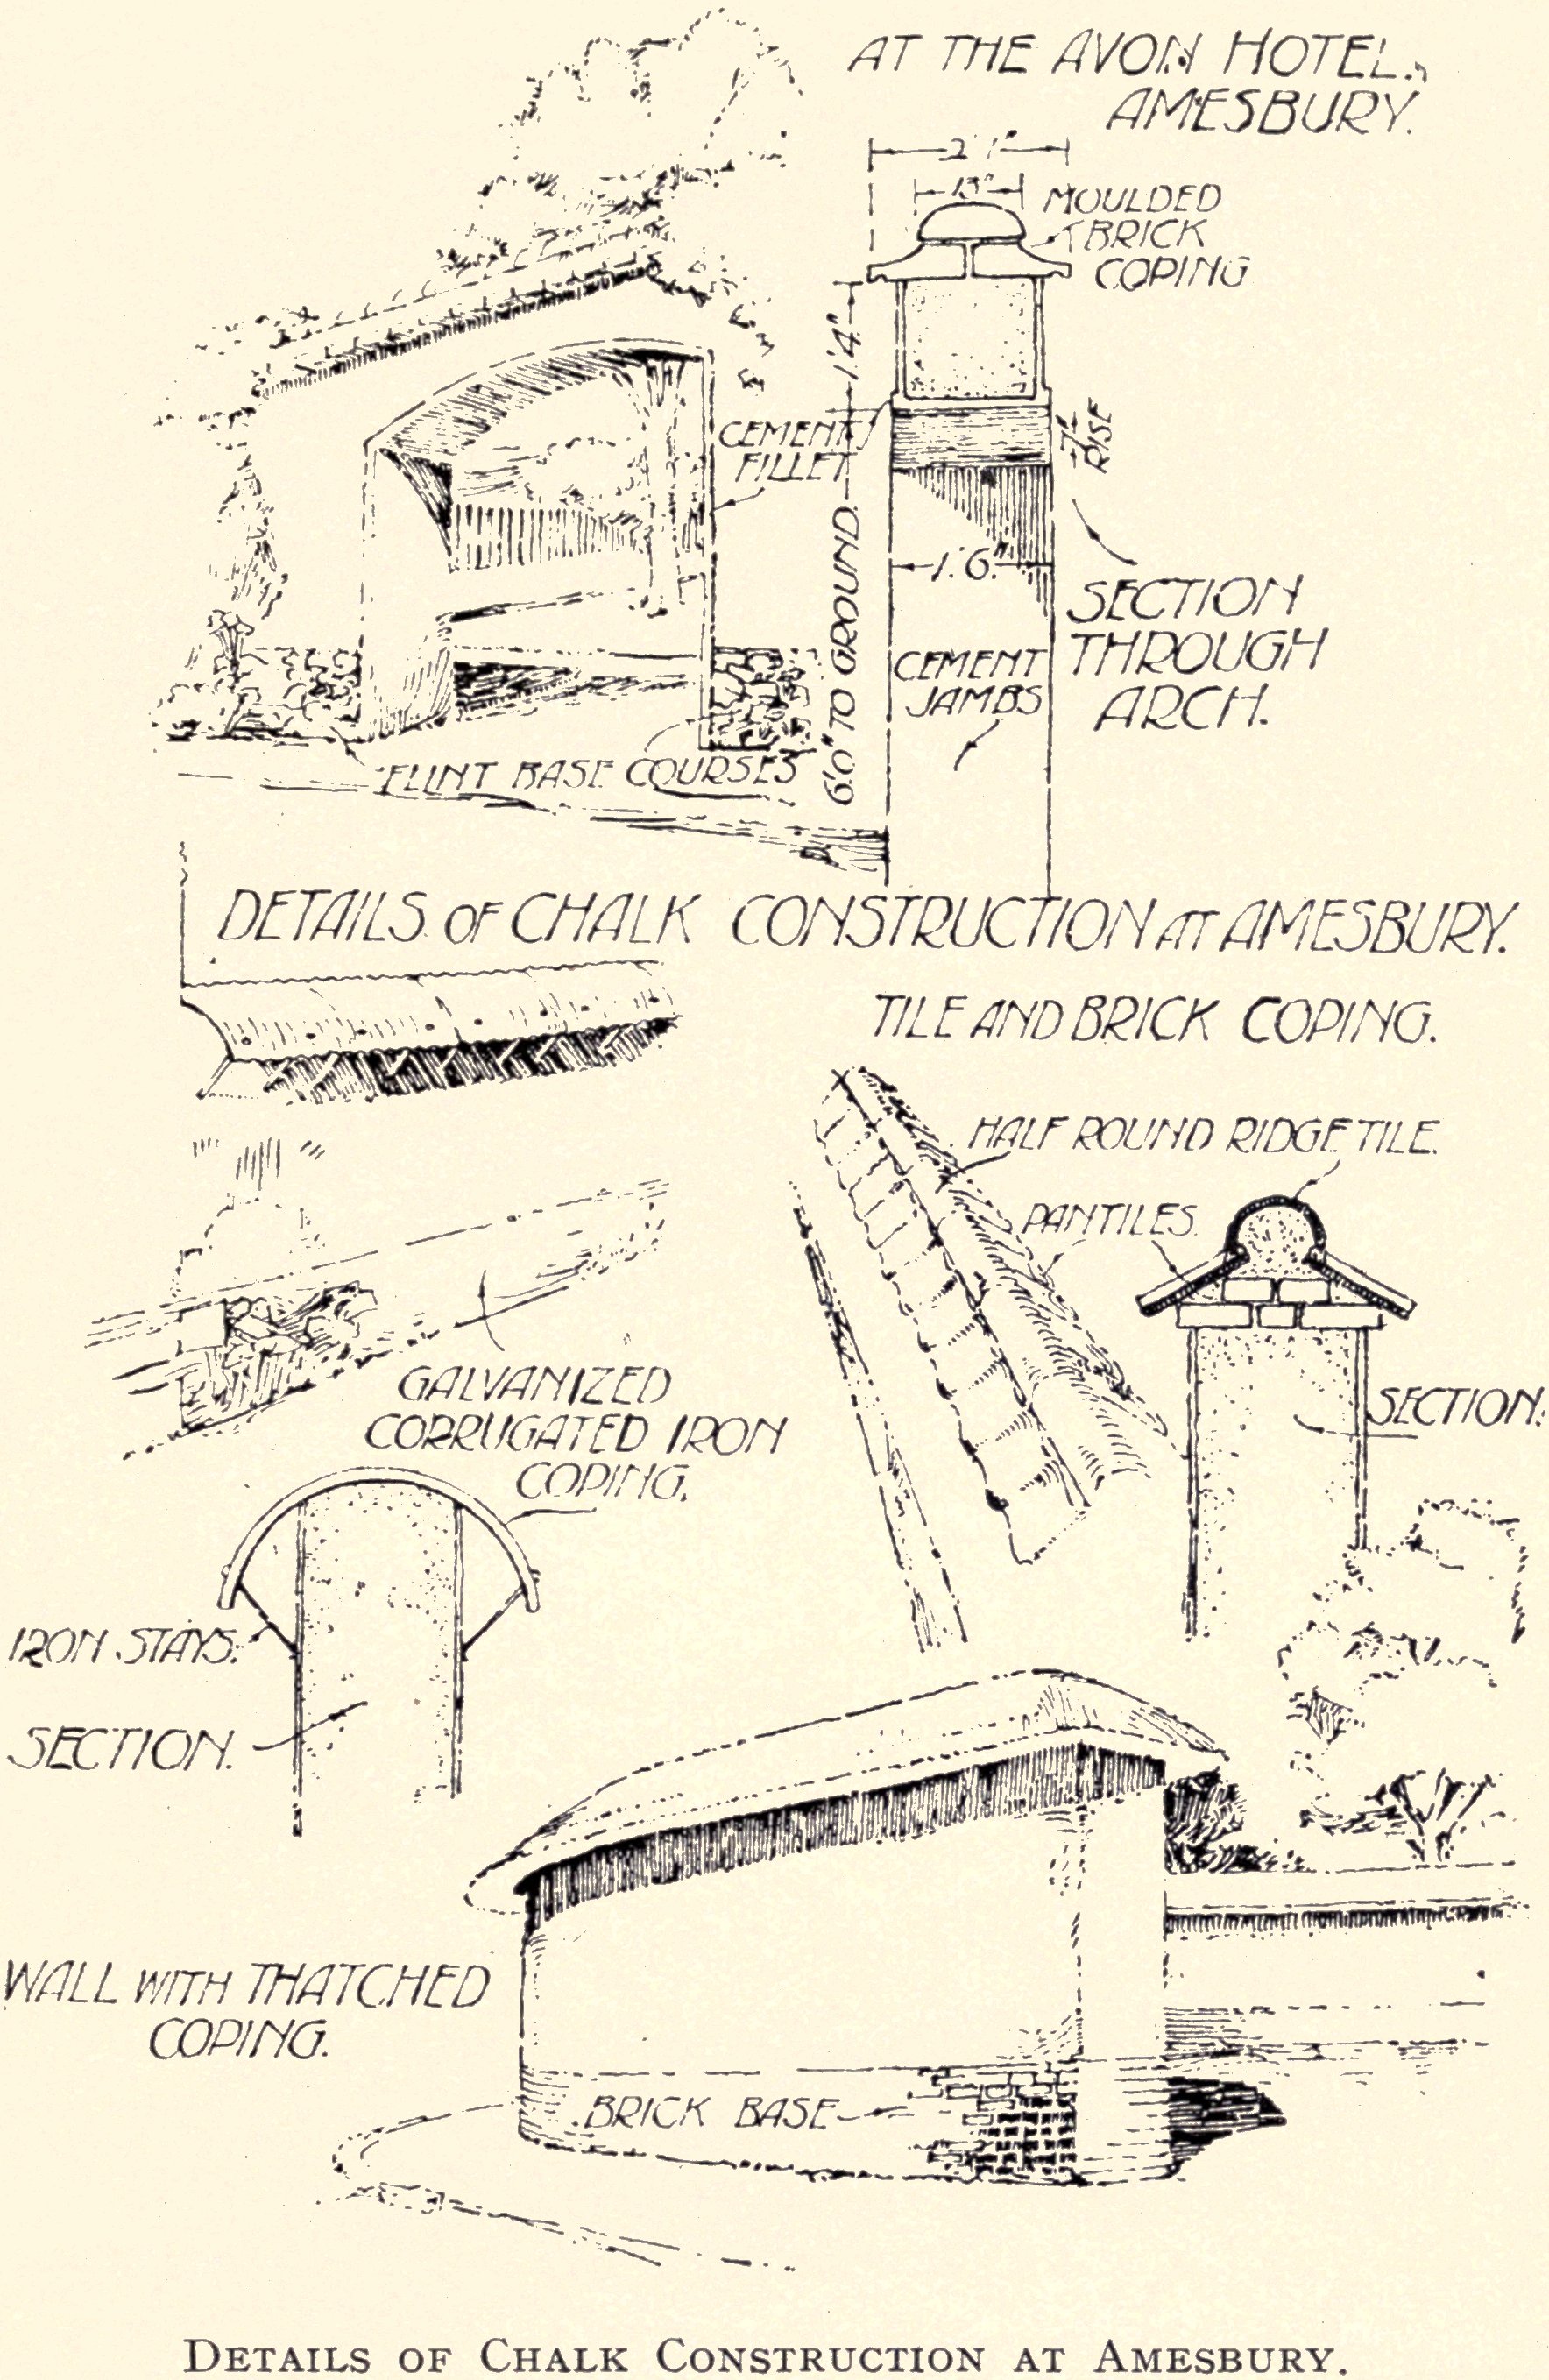 AT THE AVON HOTEL,
AMESBURY.
2'1"
13"
MOULDED
BRICK
COPING
1'.4"
CEMENT
FILLET
RISE
6'.0" TO GROUND.
1'.6"
SECTION
THROUGH
ARCH.
CEMENT
JAMBS
FLINT BASE COURSES
DETAILS OF CHALK CONSTRUCTION AT AMESBURY.
TILE AND BRICK COPING.
HALF ROUND RIDGE TILE.
PANTILES.
SECTION.
GALVANIZED
CORRUGATED IRON
COPING.
IRON STAYS.
SECTION.
WALL WITH THATCHED
COPING.
BRICK BASE
DETAILS OF CHALK CONSTRUCTION AT AMESBURY.